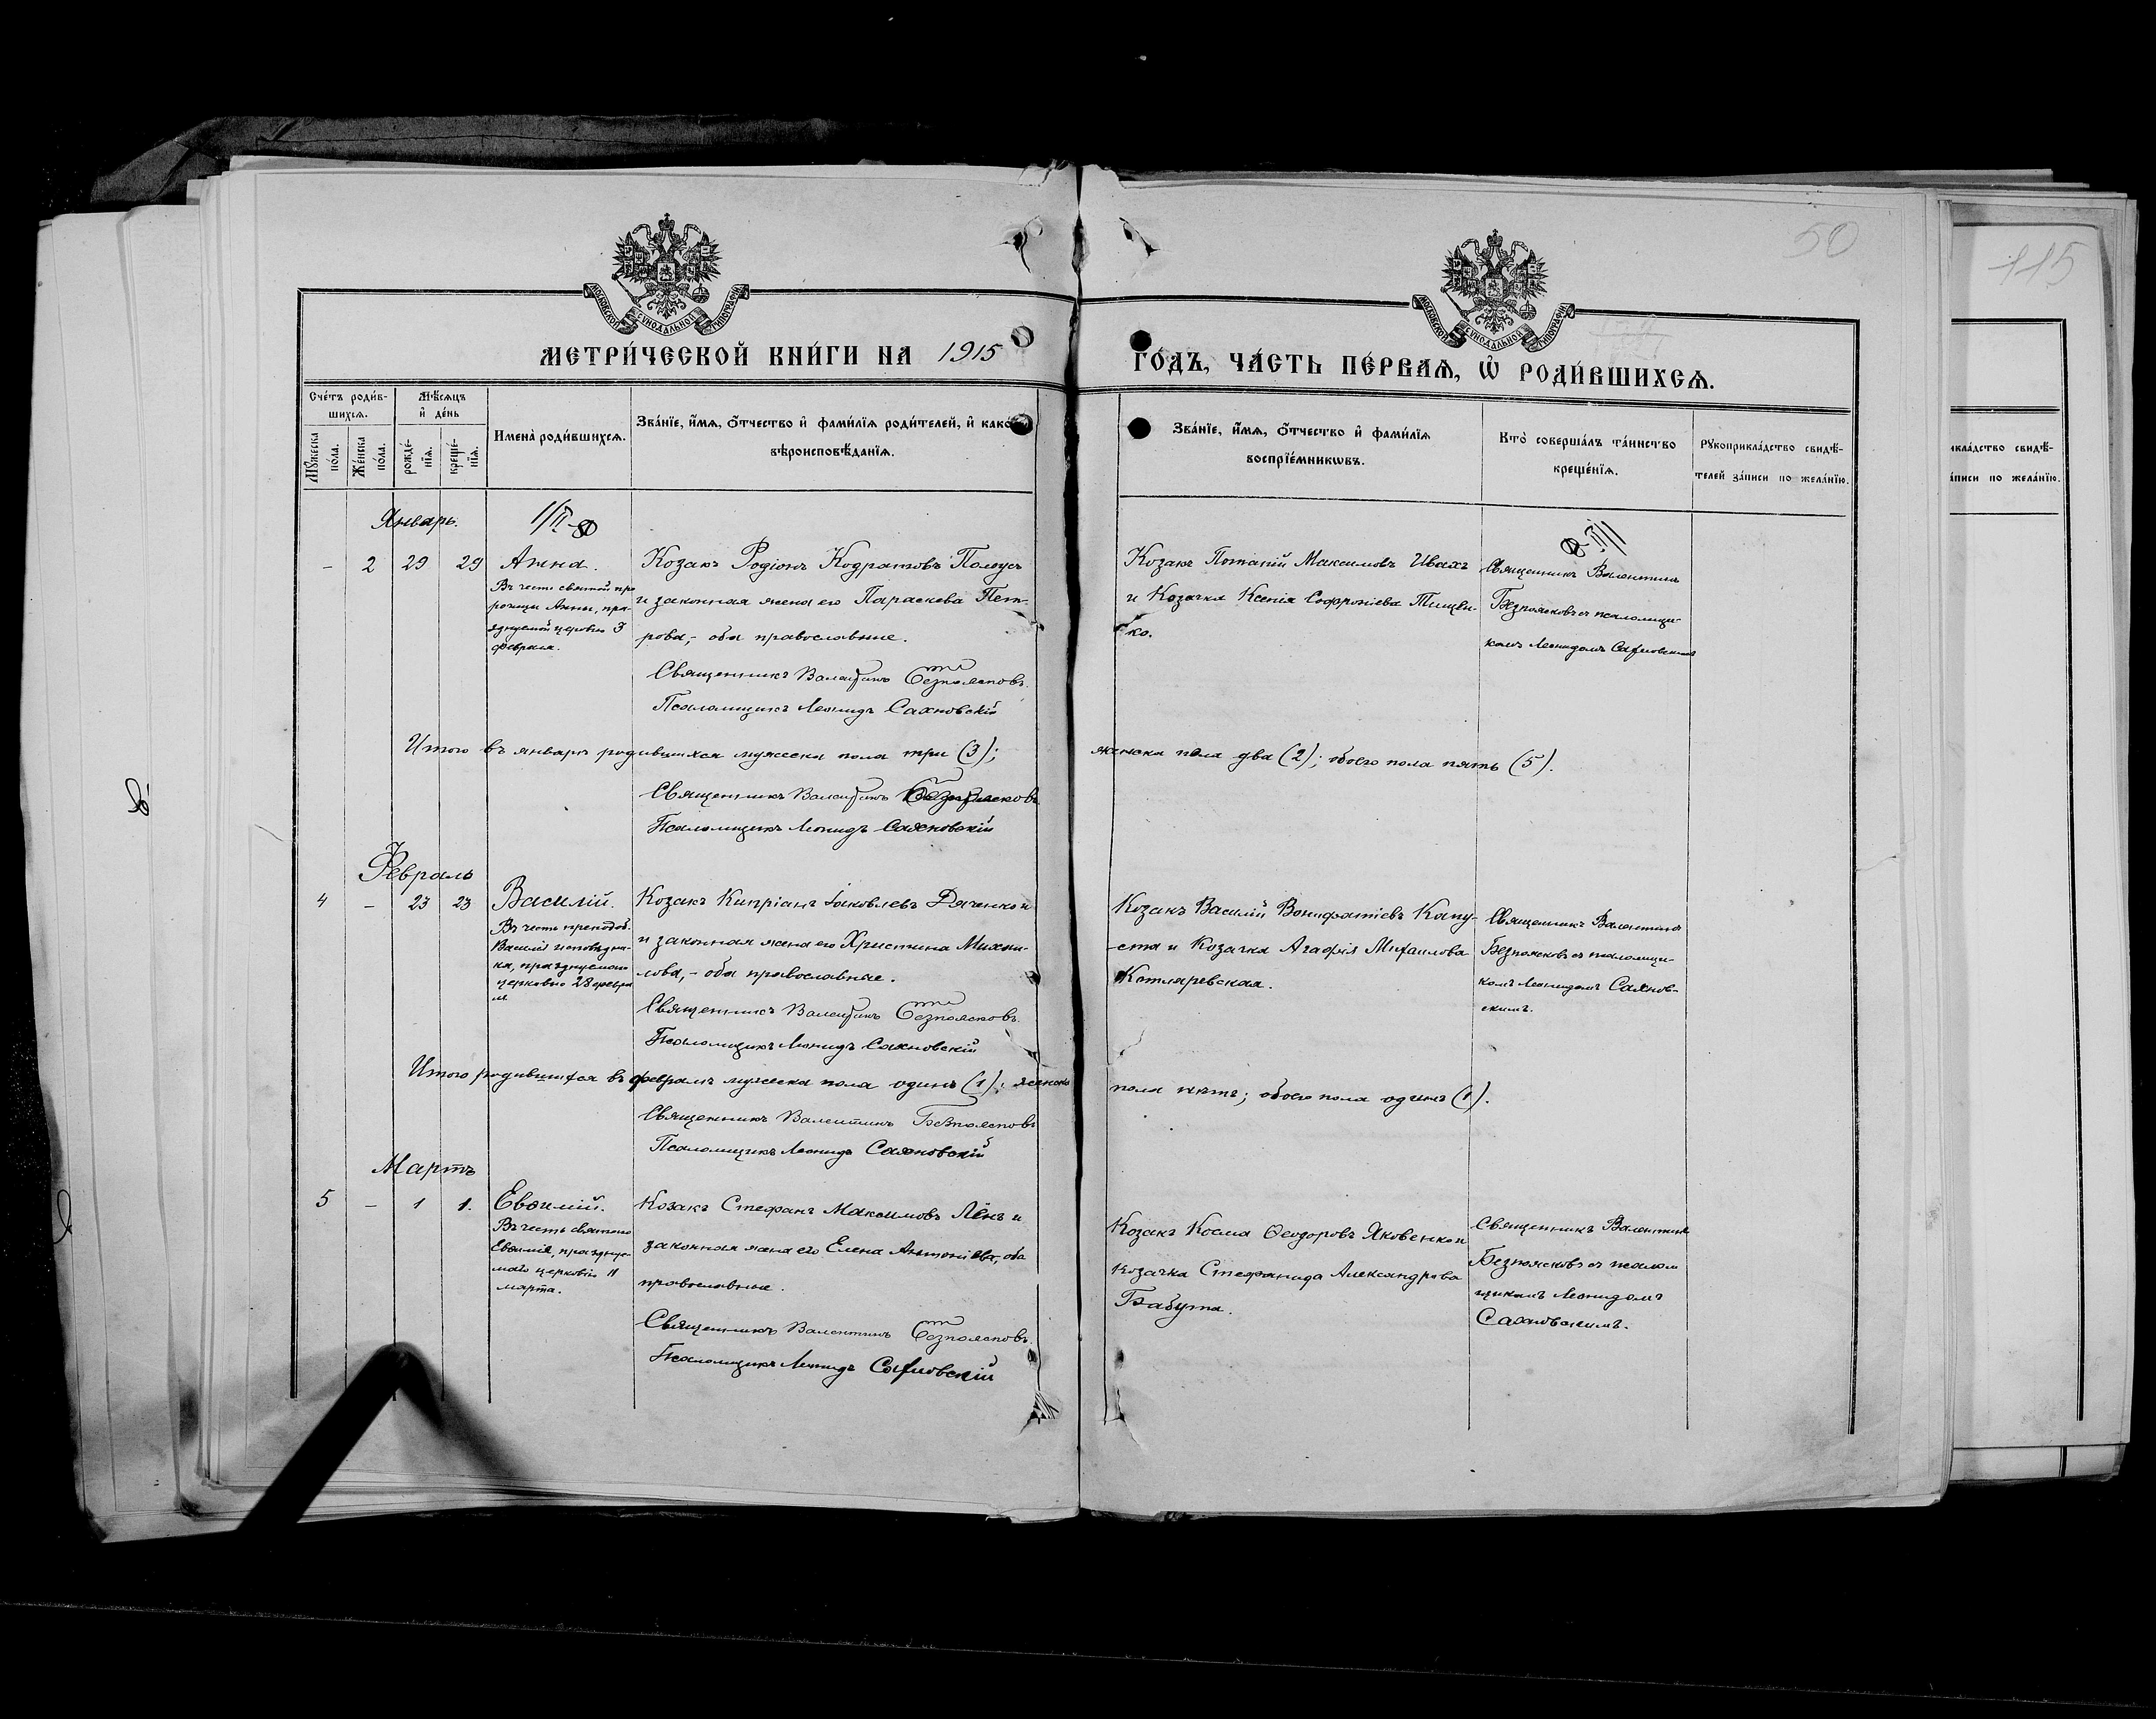 50
115
МОСКОВСКОЙ СѴНОДАЛЬНОЙ ТИПОГРАФІИ
МОСКОВСКОЙ СѴНОДАЛЬНОЙ ТИПОГРАФІИ
МЕТРИ́ЧЕСКОЙ КНИ́ГИ НА 1915
ГО́ДЪ, ЧА́СТЬ ПЕ́РВАѦ, Ѡ҆ РОДИ́ВШИХСѦ.
Сче́тъ роди́в-
шихсѧ.
Мѣ́сѧцъ
и҆ де́нь
Мꙋ́жеска
по́ла.
Же́нска
по́ла.
рожде́-
нїѧ.
креще́-
нїѧ.
Имена̀ роди́вшихсѧ.
Зва́нїе, и҆́мѧ, ѻ҆́тчество и҆ фами́лїѧ роди́телей, и҆ како́
вѣроисповѣ́данїѧ.
Зва́нїе, и҆́мѧ, ѻ҆́тчество и҆ фами́лїѧ
воспрїе́мникѡвъ.
Кто̀ соверша́лъ та́инство
креще́нїѧ.
Рꙋкоприкла́дство свидѣ́-
телей за́писи по жела́нїю.
икла́дство свидѣ́-
а́писи по жела́нїю.
Январь.
- 2 29 29 Анна.
Въ честь святой про
рочицы Анны, пра-
зднуемой церковію 3
февраля.
Козакъ Родіонъ Кодратовъ
и законная жена его Параскева Пет-
рова, - оба православные.
Священникъ Валентинъ Безпоясковъ.
Псаломщикъ Леонидъ Сахновскій
Козакъ Потапій Максимовъ Ивахъ
и Козачка Ксенія Софроніева Тищен-
ко.
Священникъ Валентинъ
Безпоясковъ съ псаломщи-
комъ Леонидомъ Сахновскимъ
Итого въ январѣ родившихся мужеска пола три (3);
женска пола два (2); обоего пола пять (5).
Священникъ Валентинъ Безпоясковъ
Псаломщикъ Леонидъ Сахновскій
Февраль
4 - 23 23 Василій.
Въ честь преподоб.
Василія исповѣдни-
ка, празднуемаго
церковію 28 февра
ля
Козакъ Кипріанъ Іаковлевъ Дяченко и
и законная жена его Христина Михаи-
лова, - оба православные.
Священникъ Валентинъ Безпоясковъ.
Псаломщикъ Леонидъ Сахновскій
Козакъ Василій Вонифатіевъ Капу-
ста и Козачка Агафія Михаилова
Котляревская.
Священникъ Валентинъ
Безпоясковъ съ псаломщи-
комъ Леонидомъ Сахнов-
скимъ.
Итого родившихся въ февралѣ мужеска пола одинъ (1); женска
пола нѣтъ; обоего пола одинъ (1).
Священникъ Валентинъ Безпоясковъ
Псаломщикъ Леонидъ Сахновскій
Мартъ
5 - 1 1. Евѳимій.
Въ честь святого
Евѳимія, праздну-
маго церковію 11
марта.
Козакъ Стефанъ Максимовъ Лёнъ и
законная жена его Елена Антоніева, оба
православные.
Священникъ Валентинъ Безпоясковъ.
Псаломщикъ Леонидъ Сахновскій
Козакъ Косма Ѳеодоровъ Яковенко и
козачка Стефанида Александрова
Бабута.
Священникъ Валентинъ
Безпоясковъ съ псалом
щикомъ Леонидомъ
Сахновскимъ.